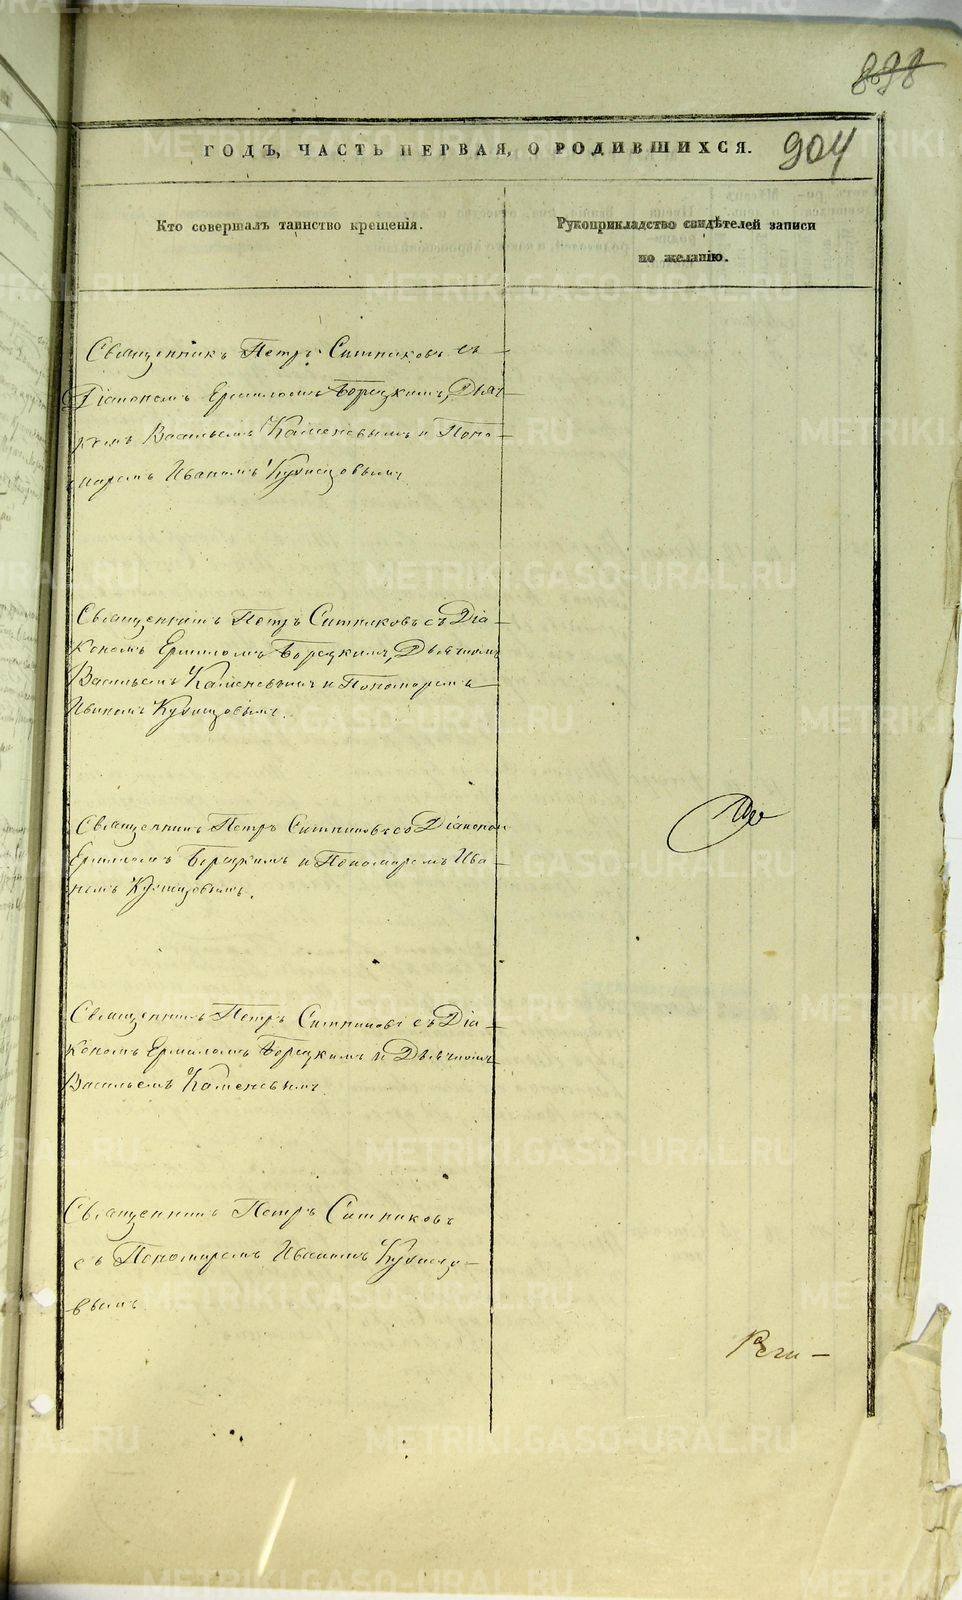 898
ГОДЪ, ЧАСТЬ ПЕРВАЯ, О РОДИВШИХСЯ. 904
Кто совершалъ таинство крещенія.
Рукоприкладство свидѣтелей записи
по желанію.
Священникъ Петръ Ситниковъ съ
Діакономъ Ермиломъ Борецкимъ, Дьяч-
комъ Васильемъ Каменевымъ и Поно-
маремъ Иваномъ Кузнецовымъ
Священникъ Петръ Ситниковъ съ Діа-
кономъ Ермиломъ Борецкимъ, Дьячкомъ
Васильемъ Каменевымъ и Пономаремъ
Иваномъ Кузнецовымъ.
Священникъ Петръ Ситниковъ съ Діакономъ
Ермиломъ Борецкимъ и Пономаремъ Ива-
номъ Кузнецовымъ.
Священникъ Петръ Ситниковъ съ Діа-
кономъ Ермиломъ Борецкимъ и Дьячкомъ
Васильемъ Каменевымъ
Священникъ Петръ Ситниковъ
съ Пономаремъ Иваномъ Кузнецо-
вымъ
METRIKI.GASO-URAL.RU